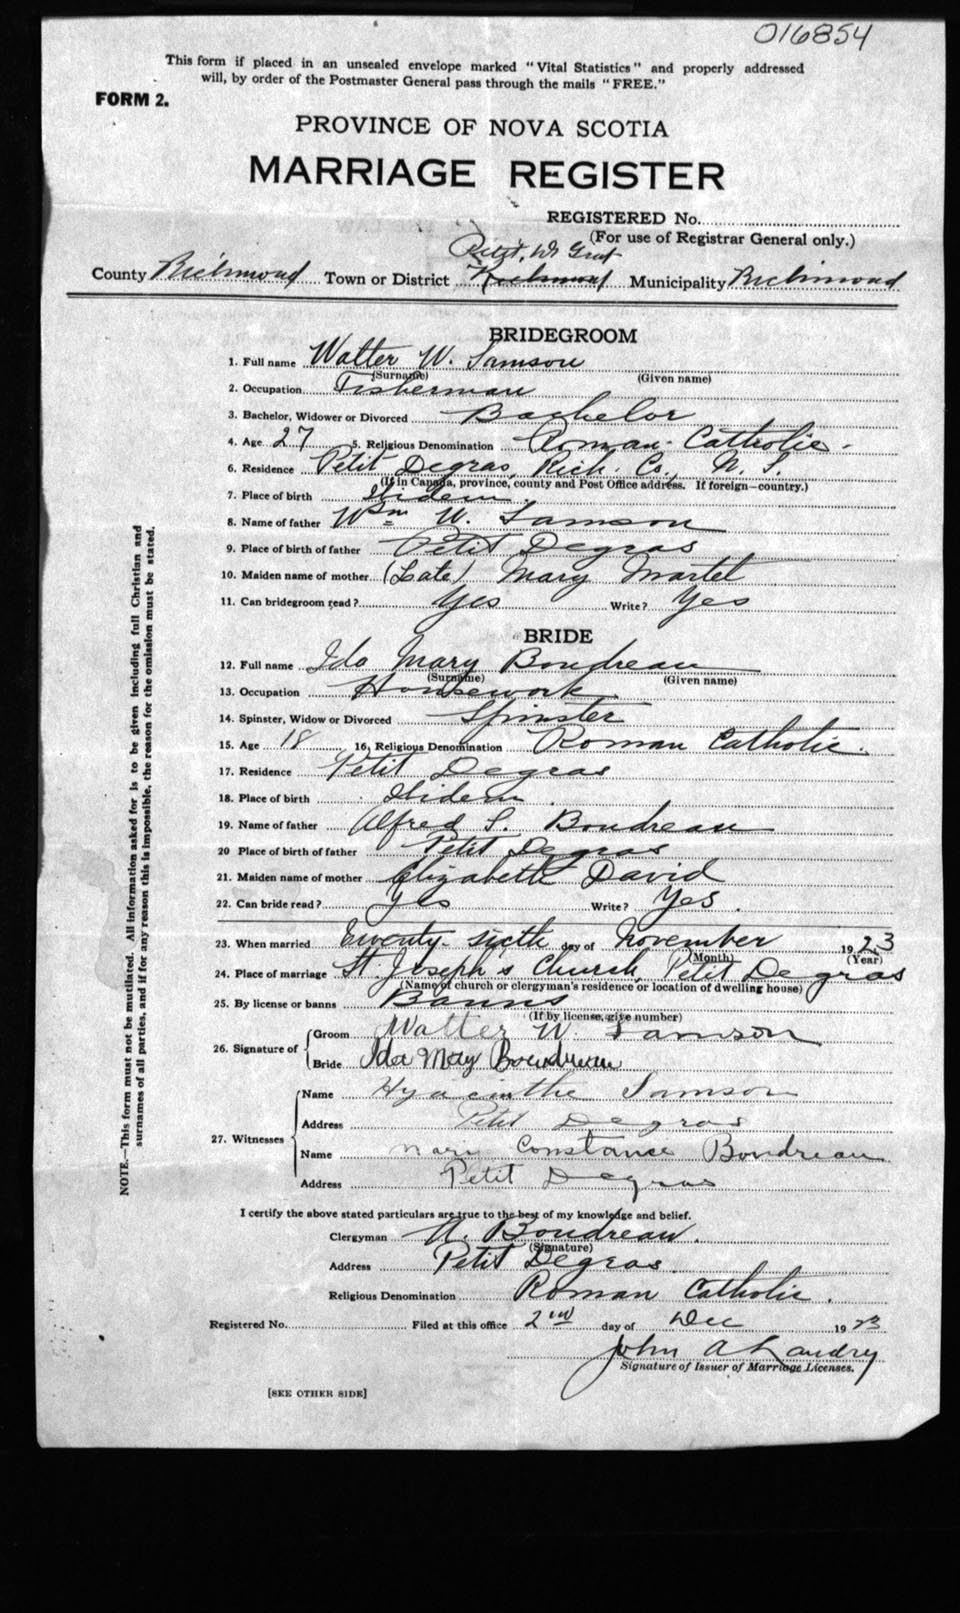 016854
This form if placed in an unsealed envelope marked "Vital Statistics" and properly addressed
will, by order of the Postmaster General pass through the mails "FREE."
FORM 2.
PROVINCE OF NOVA SCOTIA
MARRIAGE REGISTER
REGISTERED No.
(For use of Registrar General only.)
Petit de Grat
County Richmond Town or District Richmond Municipality Richmond
BRIDEGROOM
1. Full name Walter W. Samson
(Surname) (Given name)
2. Occupation Fisherman
3. Bachelor, Widower or Divorced Bachelor
4. Age 27 5. Religious Denomination Roman Catholic.
6. Residence Petit Degras, Rich. Co., N. S.
(If in Canada, province, county and Post Office address. If foreign—country.)
7. Place of birth Ibidem
8. Name of father Wm W. Samson
9. Place of birth of father Petit Degras
10. Maiden name of mother (Late) Mary Martel
11. Can bridegroom read? Yes Write? Yes
BRIDE
12. Full name Ida Mary Boudreau
(Surname) (Given name)
13. Occupation Housework
14. Spinster, Widow or Divorced Spinster
15. Age 18 16. Religious Denomination Roman Catholic.
17. Residence Petit Degras
18. Place of birth Ibidem.
19. Name of father Alfred S. Boudreau
20 Place of birth of father Petit Degras
21. Maiden name of mother Elizabeth David
22. Can bride read? Yes Write? Yes.
23. When married Twenty-sixth day of November 1923
(Month) (Year)
24. Place of marriage St. Joseph's Church, Petit Degras
(Name of church or clergyman's residence or location of dwelling house)
25. By license or banns Banns
(If by license, give number)
26. Signature of Groom Walter W. Samson
Bride Ida Mary Boudreau
27. Witnesses Name Hyacinthe Samson
Address Petit Degras
Name Mary Constance Boudreau
Address Petit Degras
I certify the above stated particulars are true to the best of my knowledge and belief.
Clergyman A. Boudreau.
(Signature)
Address Petit Degras.
Religious Denomination Roman Catholic.
Registered No. Filed at this office 2nd day of Dec 1923
John A Landry
Signature of Issuer of Marriage Licenses.
[SEE OTHER SIDE]
NOTE.—This form must not be mutilated. All information asked for is to be given including full Christian and
surnames of all parties, and if for any reason this is impossible, the reason for the omission must be stated.